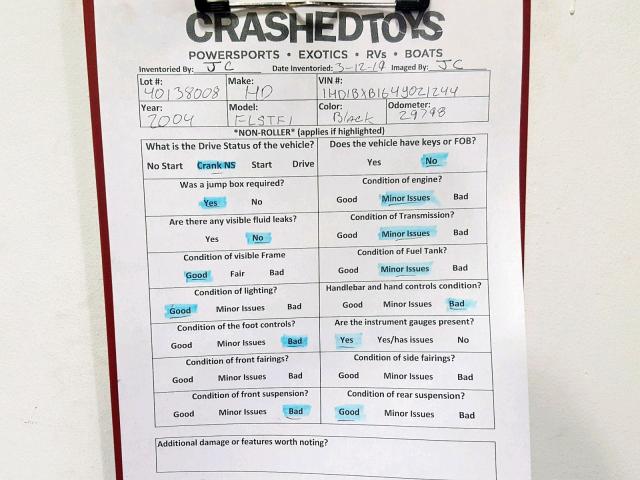 CRASHEDTOYS
POWERSPORTS • EXOTICS • RVs • BOATS
Inventoried By: JC Date Inventoried: 3-12-19 Imaged By: JC
Lot #: Make: VIN #:
40138008 HD 1HD1BXB164Y021244
Year: Model: Color: Odometer:
2004 FLSTFI Black 29798
*NON-ROLLER* (applies if highlighted)
What is the Drive Status of the vehicle? Does the vehicle have keys or FOB?
No Start Crank NS Start Drive Yes No
Was a jump box required? Condition of engine?
Yes No Good Minor Issues Bad
Are there any visible fluid leaks? Condition of Transmission?
Yes No Good Minor Issues Bad
Condition of visible Frame Condition of Fuel Tank?
Good Fair Bad Good Minor Issues Bad
Condition of lighting? Handlebar and hand controls condition?
Good Minor Issues Bad Good Minor Issues Bad
Condition of the foot controls? Are the instrument gauges present?
Good Minor Issues Bad Yes Yes/has issues No
Condition of front fairings? Condition of side fairings?
Good Minor Issues Bad Good Minor Issues Bad
Condition of front suspension? Condition of rear suspension?
Good Minor Issues Bad Good Minor Issues Bad
Additional damage or features worth noting?